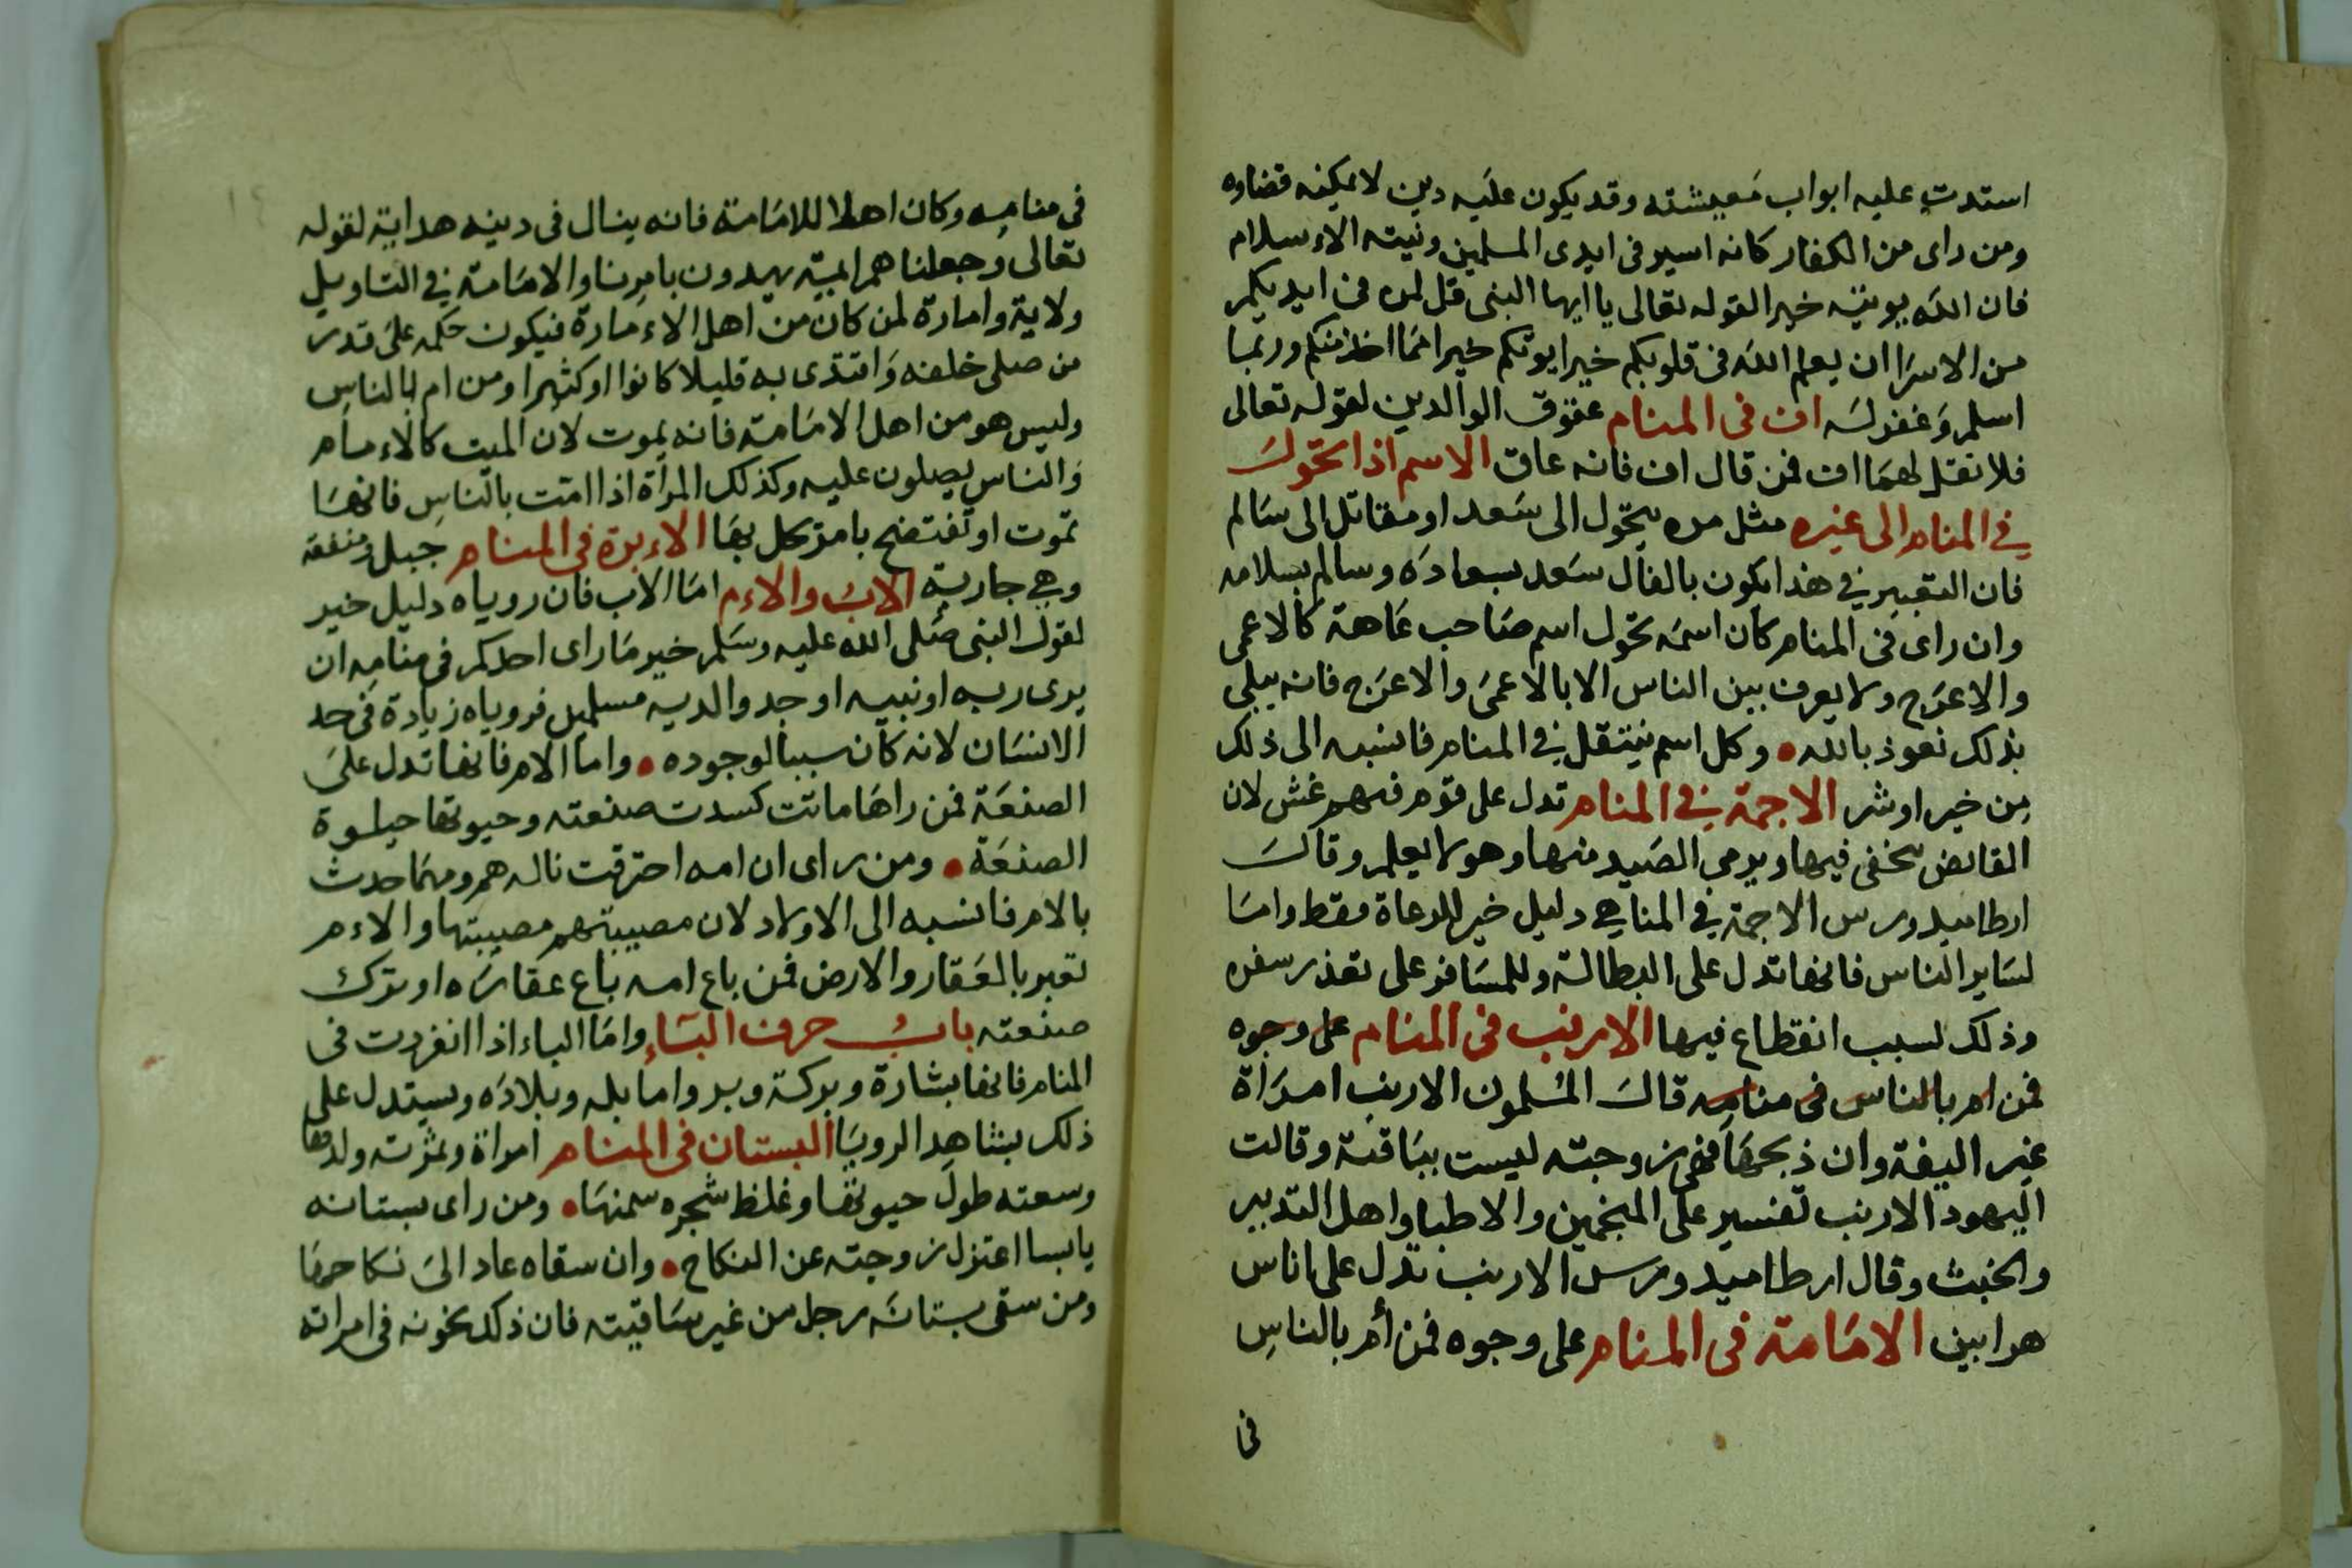 استدت عليه ابواب معيشته وقد يكون عليه دين لا يمكنه قضاوه
ومن راى من الكفار كانه اسير فى ايدى المسلمين ونيته الاءسلام
فان الله يوتيه خيرا لقوله تعالى يا ايها النبى قل لمن فى ايديكم
من الاسرا ان يعلم الله فى قلوبكم خيرا يوتكم خيرا مما اخذ منكم وربما
اسلم وغفر له اف فى المنام عقوق الوالدين لقوله تعالى
فلا تقل لهما اف فمن قال اف فانه عاق الاسم اذا تحول
في المنام الى غيره مثل من يتحول الى سعد او مقاتل الى سالم
فان التعبير في هذا يكون بالفال سعد بسعاده وسالم بسلامه
وان راى فى المنام كان اسمه تحول اسم صاحب عاهة كالاعمى
والاعرج ولا يعرف بين الناس الا بالاعمى والاعرج فانه يبلى
بذلك نعوذ بالله • وكل اسم ينتقل في المنام فانسبه الى ذلك
من خير او شر الاجمة في المنام تدل على قوم فيهم غش لان
القانص يختفى فيها ويرمى الصيد منها وهو لا يعلم وقال
ارطاميدورس الاجمة في المنام هي دليل خير للرعاة فقط واما
لساير الناس فانها تدل على البطالة وللمسافر على تعذر سفره
وذلك لسبب انقطاع فيها الارنب فى المنام على وجوه
فمن ام بالناس فى منامه قال المسلمون الارنب امراة
غير اليفة وان ذبحها فهى زوجته ليست بباقية وقالت
اليهود الارنب تفسير على المنجمين والاطبا واهل التدبير
والخبث وقال ارطاميدورس الارنب تدل على اناس
هرابين الامامة فى المنام على وجوه فمن أم بالناس
فى
فى منامه وكان اهلا للامامة فانه ينال فى دينه هداية لقوله
تعالى وجعلناهم ايمية يهدون بامرنا والامامة في التاويل
ولاية وامارة لمن كان من اهل الاءمارة فيكون حكمه على قدر
من صلى خلفه واقتدى به قليلا كانوا او كثيرا ومن ام بالناس
وليس هو من اهل الامامة فانه يموت لان الميت كالاءمام
والناس يصلون عليه وكذلك المراة اذا امت بالناس فانها
تموت او تفتضح بامر تكل بها الاءبرة فى المنام جبل ومنفعة
وهي جارية الاب والاءم اما الاب فان روياه دليل خير
لقول النبى صلى الله عليه وسلم خير ما راى احدكم فى منامه ان
يرى ربه او نبيه او جد والديه مسلمين فروياه زيادة فى حد
الانسان لانه كان سببا لوجوده • واما الام فانها تدل على
الصنعة فمن راها ماتت كسدت صنعته وحيوتها حيلوة
الصنعة • ومن راى ان امه احترقت ناله هم ومهما حدث
بالام فانسبه الى الاولاد لان مصيبتهم مصيبتها والاءم
تعبر بالعقار والارض فمن باع امه باع عقاره او ترك
صنعته باب حرف الباء واما الباء اذا انفردت فى
المنام فانها بشارة وبركة وبر واما بله وبلاده ويستدل على
ذلك بشاهد الرويا البستان فى المنام امراة وثمرته ولدها
وسعته طول حيوتها وغلظ شجره سمنها • ومن راى بستانه
يابسا اعتزل زوجته عن النكاح • وان سقاه عاد الى نكاحها
ومن سقى بستانه رجل من غير ساقيته فان ذلك يخونه فى امراته